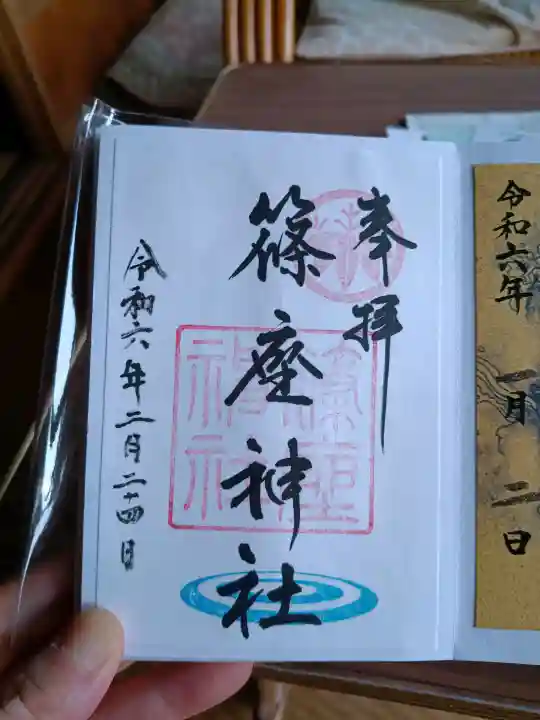 令和六年
一月
二日
奉拝
篠座神社
令和六年二月二十四日
篠座
神社